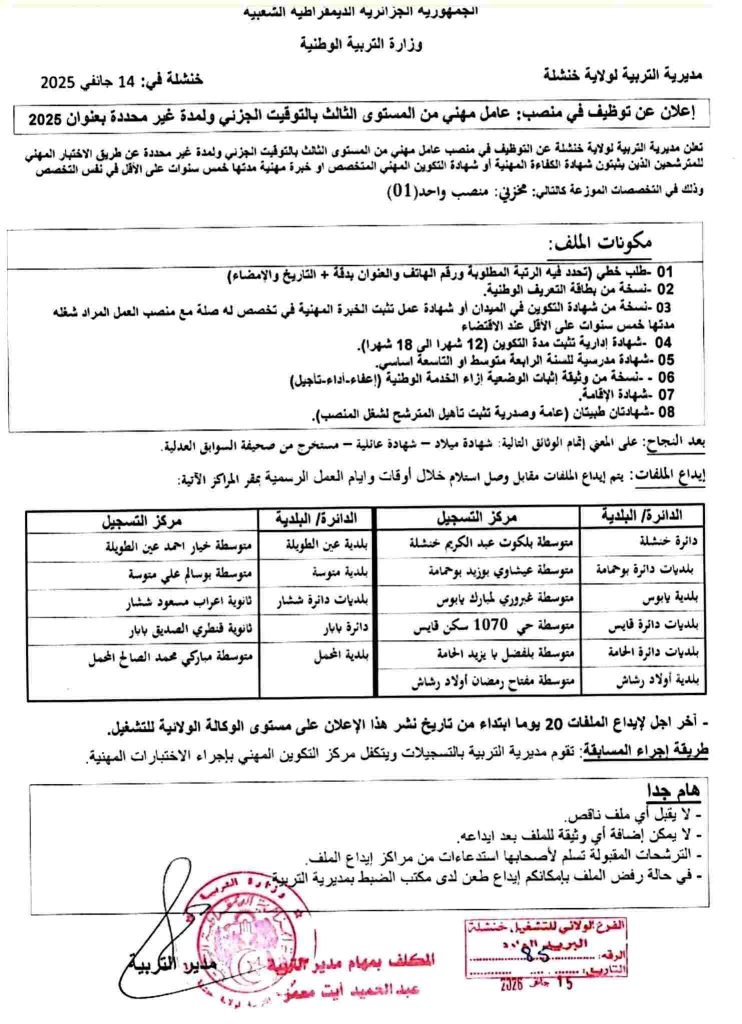 الجمهورية الجزائرية الديمقراطية الشعبية
وزارة التربية الوطنية
مديرية التربية لولاية خنشلة
خنشلة في: 14 جانفي 2025
إعلان عن توظيف في منصب: عامل مهني من المستوى الثالث بالتوقيت الجزئي ولمدة غير محددة بعنوان 2025
تعلن مديرية التربية لولاية خنشلة عن التوظيف في منصب عامل مهني من المستوى الثالث بالتوقيت الجزئي ولمدة غير محددة عن طريق الاختبار المهني
للمترشحين الذين يثبتون شهادة الكفاءة المهنية أو شهادة التكوين المهني المتخصص او خبرة مهنية مدتها خمس سنوات على الأقل في نفس التخصص
وذلك في التخصصات الموزعة كالتالي: مخزني: منصب واحد(01)
مكونات الملف:
01 -طلب خطي (تحدد فيه الرتبة المطلوبة ورقم الهاتف والعنوان بدقة + التاريخ والإمضاء)
02 -نسخة من بطاقة التعريف الوطنية.
03 -نسخة من شهادة التكوين في الميدان أو شهادة عمل تثبت الخبرة المهنية في تخصص له صلة مع منصب العمل المراد شغله
مدتها خمس سنوات على الأقل عند الاقتضاء
04 -شهادة إدارية تثبت مدة التكوين (12 شهرا الى 18 شهرا).
05 -شهادة مدرسية للسنة الرابعة متوسط او التاسعة اساسي.
06 - -نسخة من وثيقة إثبات الوضعية إزاء الخدمة الوطنية (إعفاء-أداء-تأجيل)
07 -شهادة الإقامة.
08 -شهادتان طبيتان (عامة وصدرية تثبت تأهيل المترشح لشغل المنصب).
بعد النجاح: على المعني إتمام الوثائق التالية: شهادة ميلاد – شهادة عائلية – مستخرج من صحيفة السوابق العدلية.
إيداع الملفات: يتم إيداع الملفات مقابل وصل استلام خلال أوقات وايام العمل الرسمية بمقر المراكز الآتية:
الدائرة/ البلدية مركز التسجيل الدائرة/ البلدية مركز التسجيل
دائرة خنشلة متوسطة بلكوت عبد الكريم خنشلة بلدية عين الطويلة متوسطة خيار احمد عين الطويلة
بلديات دائرة بوحمامة متوسطة عيشاوي بوزيد بوحمامة بلدية متوسة متوسطة بوسالم علي متوسة
بلدية يابوس متوسطة غبروري لمبارك يابوس بلديات دائرة ششار ثانوية اعراب مسعود ششار
بلديات دائرة قايس متوسطة حي 1070 سكن قايس دائرة بابار ثانوية قنطري الصديق بابار
بلديات دائرة الحامة متوسطة بلفضل با يزيد الحامة بلدية المحمل متوسطة مباركي محمد الصالح المحمل
بلدية أولاد رشاش متوسطة مفتاح رمضان أولاد رشاش
- أخر اجل لإيداع الملفات 20 يوما ابتداء من تاريخ نشر هذا الإعلان على مستوى الوكالة الولائية للتشغيل.
طريقة إجراء المسابقة: تقوم مديرية التربية بالتسجيلات ويتكفل مركز التكوين المهني بإجراء الاختبارات المهنية.
هام جدا
- لا يقبل أي ملف ناقص.
- لا يمكن إضافة أي وثيقة للملف بعد ايداعه.
- الترشحات المقبولة تسلم لأصحابها استدعاءات من مراكز إيداع الملف.
- في حالة رفض الملف بإمكانكم إيداع طعن لدى مكتب الضبط بمديرية التربية
مدير التربية
المكلف بمهام مدير التربية
عبد الحميد أيت معمر
وزارة التربية
الفرع الولائي للتشغيل خنشلة
البريد
الرقم: 85
التاريخ: 15 جانفي 2026